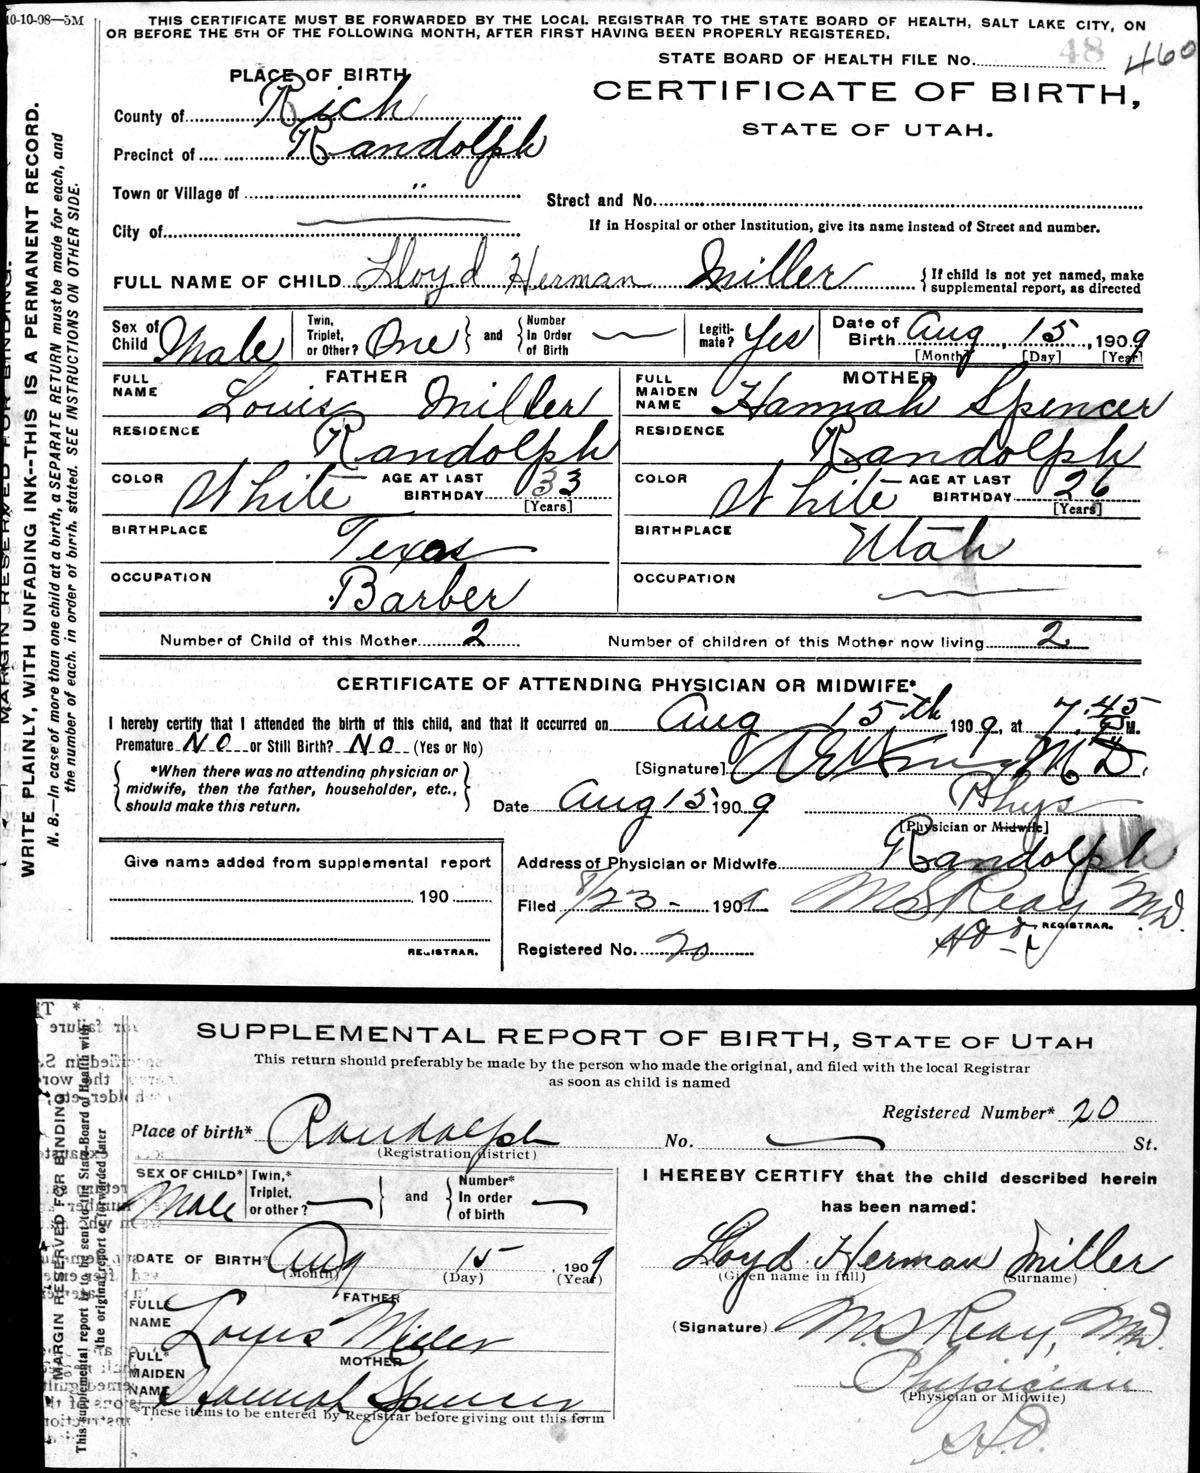 10-10-08—5M
THIS CERTIFICATE MUST BE FORWARDED BY THE LOCAL REGISTRAR TO THE STATE BOARD OF HEALTH, SALT LAKE CITY, ON
OR BEFORE THE 5TH OF THE FOLLOWING MONTH, AFTER FIRST HAVING BEEN PROPERLY REGISTERED.
STATE BOARD OF HEALTH FILE No. 48 460
PLACE OF BIRTH
CERTIFICATE OF BIRTH,
STATE OF UTAH.
County of Rich
Precinct of Randolph
Town or Village of "
Street and No.
City of
If in Hospital or other Institution, give its name instead of Street and number.
FULL NAME OF CHILD Lloyd Herman Miller { If child is not yet named, make
supplemental report, as directed
Sex of Child Male Twin, Triplet, or Other? One } and { Number In Order of Birth — Legiti-mate? Yes Date of Birth Aug, 15, 1909
[Month] [Day] [Year]
FATHER
FULL NAME Louis Miller
RESIDENCE Randolph
COLOR White AGE AT LAST BIRTHDAY 33
[Years]
BIRTHPLACE Texas
OCCUPATION Barber
MOTHER
FULL MAIDEN NAME Hannah Spencer
RESIDENCE Randolph
COLOR White AGE AT LAST BIRTHDAY 26
[Years]
BIRTHPLACE Utah
OCCUPATION —
Number of Child of this Mother 2 Number of children of this Mother now living 2
CERTIFICATE OF ATTENDING PHYSICIAN OR MIDWIFE*
I hereby certify that I attended the birth of this child, and that it occurred on Aug 15th 1909, at 7.45 M.
Premature No or Still Birth? No (Yes or No)
{ *When there was no attending physician or
midwife, then the father, householder, etc.,
should make this return. }
[Signature] M.D.
Date Aug 15 1909 Phys
[Physician or Midwife]
Address of Physician or Midwife Randolph
Filed 8/23- 1909 M S Reay M.D.
REGISTRAR.
Registered No. 20
Give name added from supplemental report
190
REGISTRAR.
MARGIN RESERVED FOR BINDING.
WRITE PLAINLY, WITH UNFADING INK--THIS IS A PERMANENT RECORD.
N. B.—In case of more than one child at a birth, a SEPARATE RETURN must be made for each, and
the number of each, in order of birth, stated. SEE INSTRUCTIONS ON OTHER SIDE.
SUPPLEMENTAL REPORT OF BIRTH, STATE OF UTAH
This return should preferably be made by the person who made the original, and filed with the local Registrar
as soon as child is named
Registered Number* 20
Place of birth* Randolph No. — St.
(Registration district)
SEX OF CHILD* Male Twin,* Triplet, or other? — } and { Number* In order of birth —
DATE OF BIRTH* Aug 15, 1909
(Month) (Day) (Year)
FATHER
FULL NAME Louis Miller
MOTHER
FULL* MAIDEN NAME Hannah Spencer
*These items to be entered by Registrar before giving out this form
I HEREBY CERTIFY that the child described herein
has been named:
Lloyd Herman Miller
(Given name in full) (Surname)
(Signature) M S Reay, M.D.
Physician
(Physician or Midwife)
MARGIN RESERVED FOR BINDING
This supplemental report is to be sent to the State Board of Health with
the original report or forwarded later